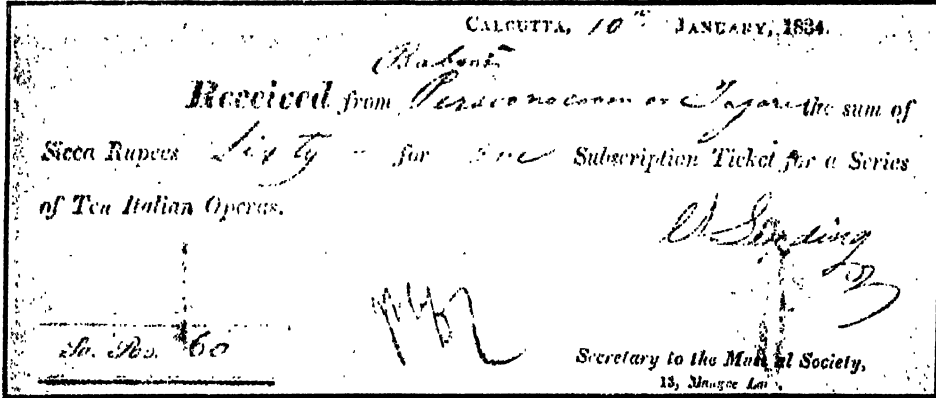 CALCUTTA, 10th JANUARY, 1834.
Baboo
Received from Tagore the sum of
Sicca Rupees Sixty - for One Subscription Ticket for a Series
of Ten Italian Operas.
Sa. Rs. 60
Secretary to the Musical Society,
13,